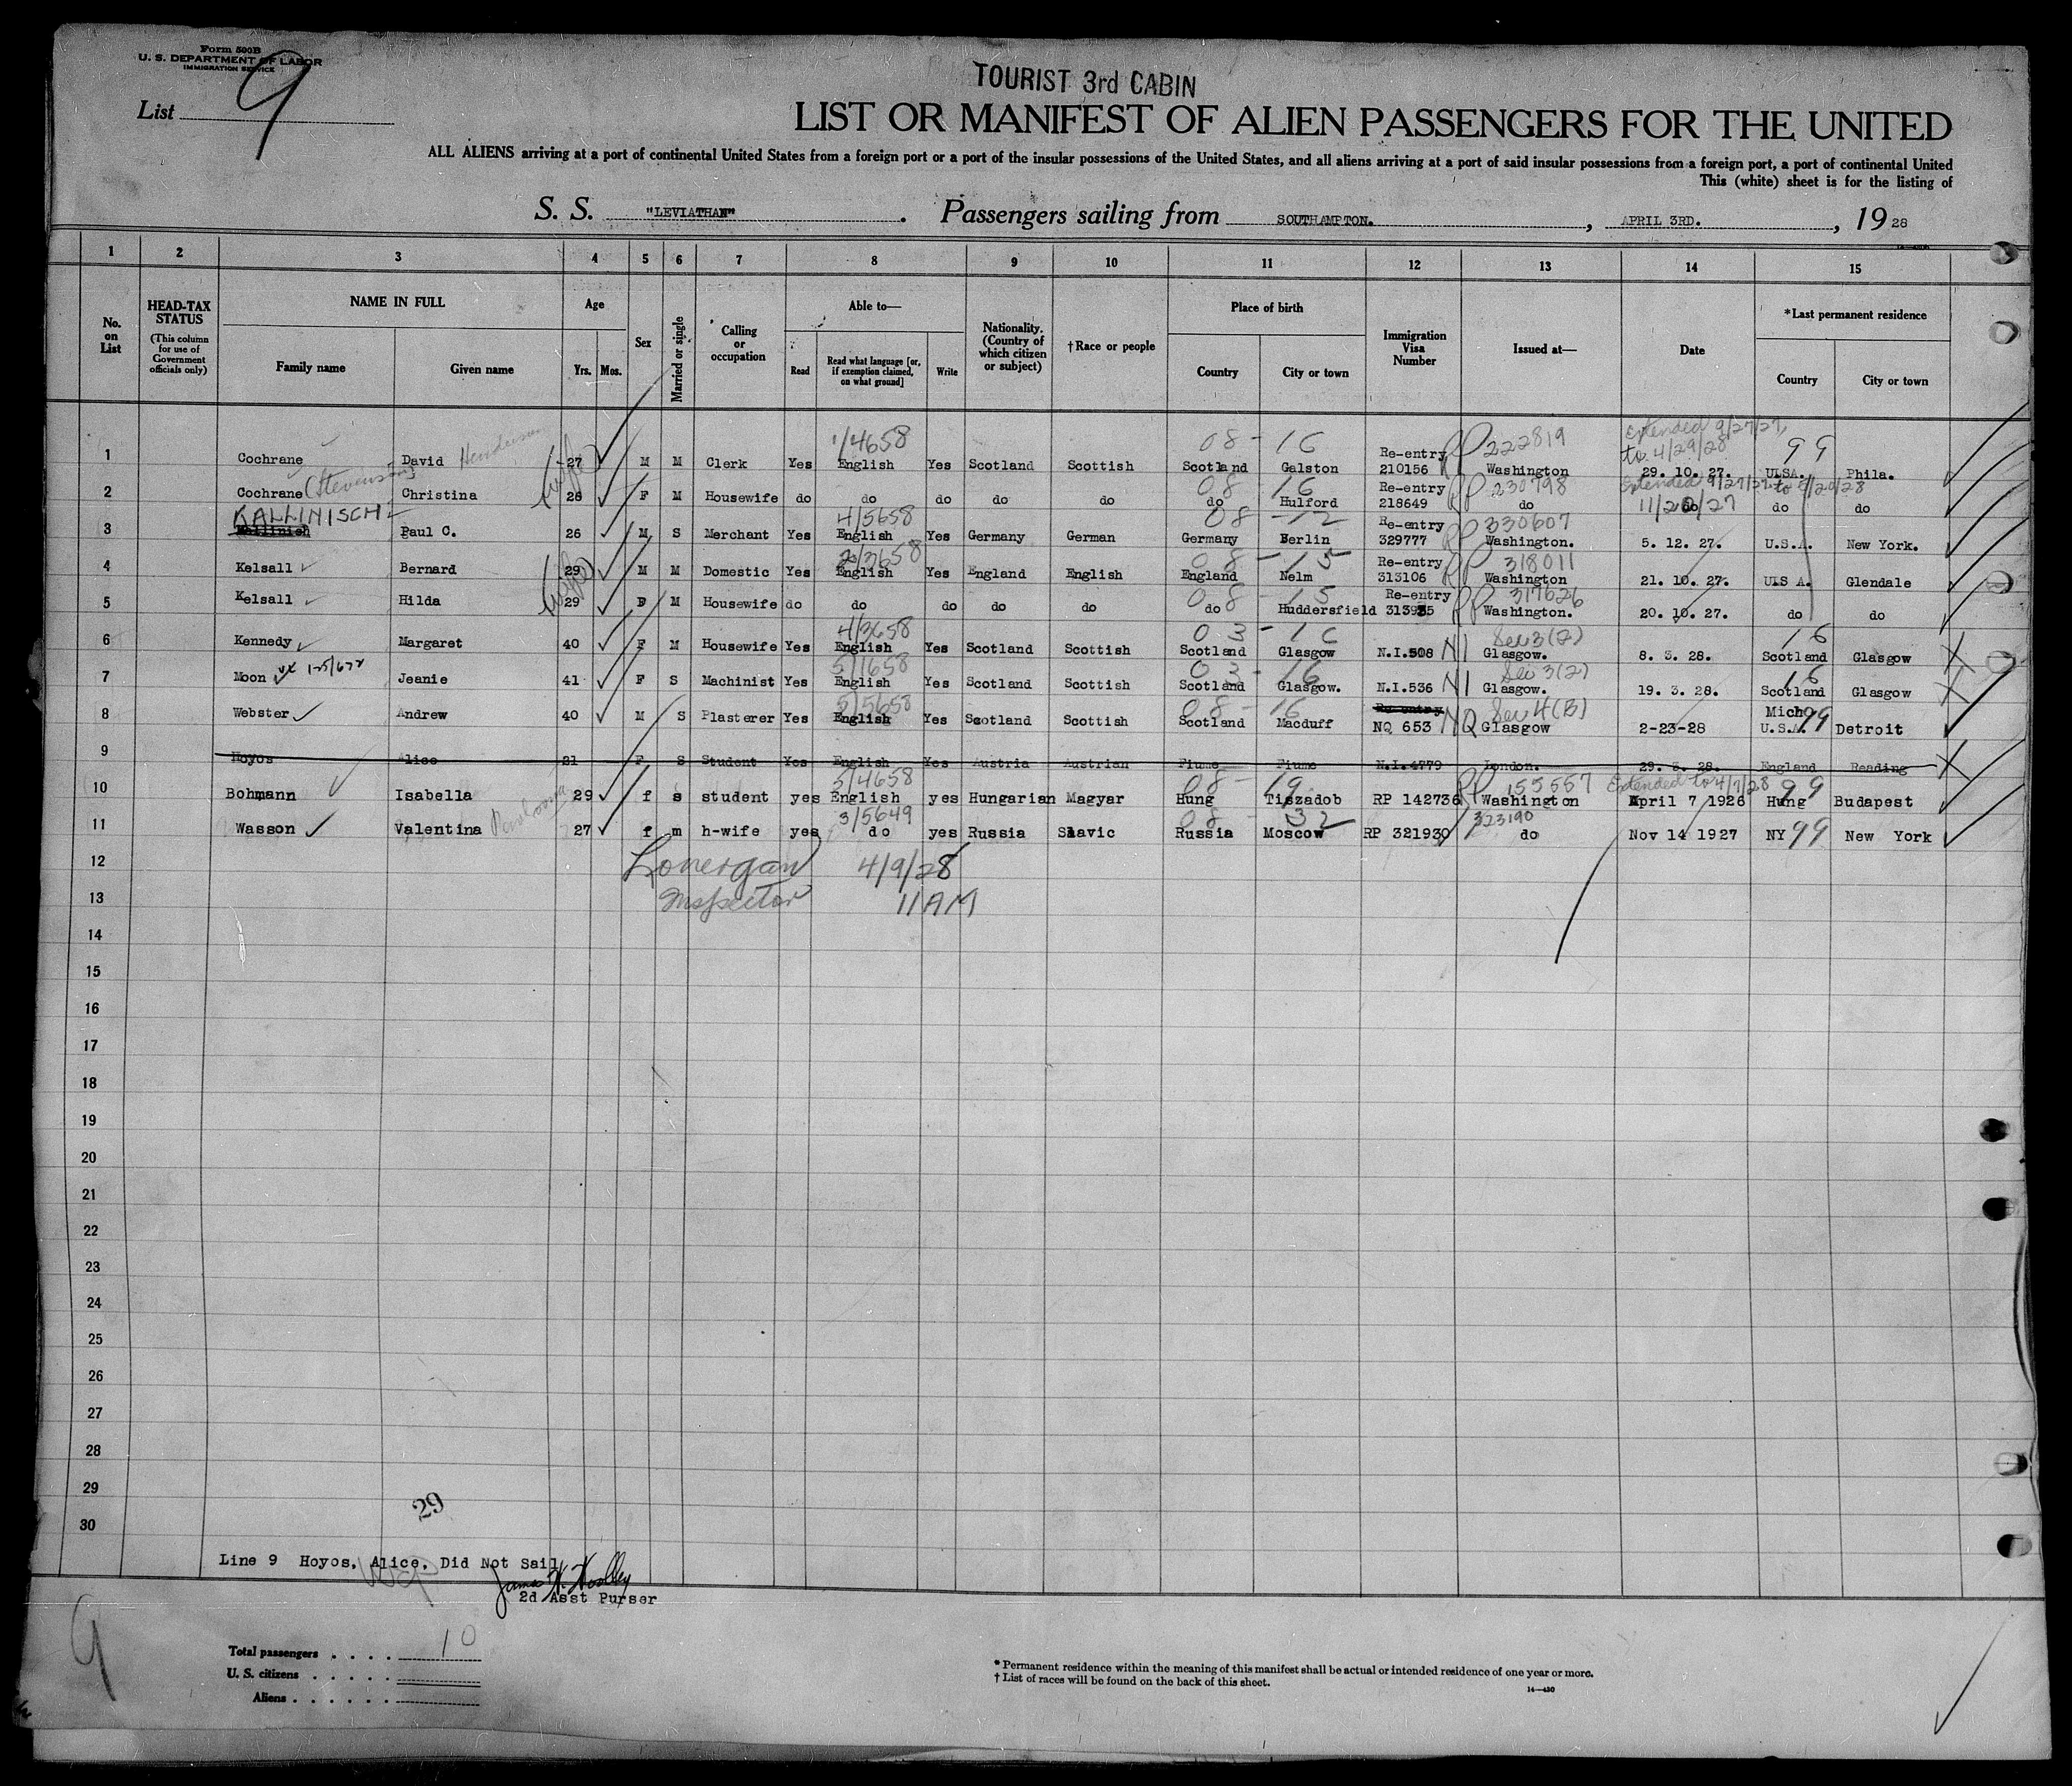 Form 500B
U. S. DEPARTMENT OF LABOR
IMMIGRATION SERVICE
List 9
TOURIST 3rd CABIN
LIST OR MANIFEST OF ALIEN PASSENGERS FOR THE UNITED
ALL ALIENS arriving at a port of continental United States from a foreign port or a port of the insular possessions of the United States, and all aliens arriving at a port of said insular possessions from a foreign port, a port of continental United
This (white) sheet is for the listing of
S. S. "LEVIATHAN". Passengers sailing from SOUTHAMPTON., APRIL 3RD., 1928
1 2 3 4 5 6 7 8 9 10 11 12 13 14 15
No. on List
HEAD-TAX STATUS
(This column for use of Government officials only)
NAME IN FULL
Family name Given name
Age
Yrs. Mos.
Sex
Married or single
Calling or occupation
Able to—
Read
Read what language [or, if exemption claimed, on what ground]
Write
Nationality. (Country of which citizen or subject)
†Race or people
Place of birth
Country City or town
Immigration Visa Number
Issued at—
Date
*Last permanent residence
Country City or town
1/4658 08-16 RP 222819 Extended 9/27/27, to 4/29/28 99
1 Cochrane David Henderson 27 M M Clerk Yes English Yes Scotland Scottish Scotland Galston Re-entry 210156 Washington 29. 10. 27. USA. Phila.
08-16 RP 230798 Extended 9/27/27 to 8/20/28
2 Cochrane (Stevenson) Christina wife 26 F M Housewife do do do do do do Hulford Re-entry 218649 do 11/20/27 do do
KALLINISCH 4/5658 08-12 RP 330607
3 Kallinish Paul C. 26 M S Merchant Yes English Yes Germany German Germany Berlin Re-entry 329777 Washington. 5. 12. 27. U.S.A. New York.
2/3658 08-15 RP 318011
4 Kelsall Bernard 29 M M Domestic Yes English Yes England English England Nelm Re-entry 313106 Washington 21. 10. 27. US A. Glendale
08-15 RP 317626
5 Kelsall Hilda wife 29 F M Housewife do do do do do do Huddersfield Re-entry 313935 Washington. 20. 10. 27. do do
4/3658 03-16 NI Sec 3(2) 16
6 Kennedy Margaret 40 F M Housewife Yes English Yes Scotland Scottish Scotland Glasgow N.I.508 Glasgow. 8. 3. 28. Scotland Glasgow
5/1658 03-16 NI Sec 3(2) 16
7 Moon Jeanie 41 F S Machinist Yes English Yes Scotland Scottish Scotland Glasgow. N.I.536 Glasgow. 19. 3. 28. Scotland Glasgow
5/5658 08-16 Re-entry NQ Sec 4(B) Mich 99
8 Webster Andrew 40 M S Plasterer Yes English Yes Scotland Scottish Scotland Macduff NQ 653 Glasgow 2-23-28 U.S.A. Detroit
9 Hoyos Alice 21 F S Student Yes English Yes Austria Austrian Fiume Fiume N.I.4779 London. 29. 3. 28. England Reading
5/4658 08-19 RP 155557 Extended to 4/7/28 99
10 Bohmann Isabella 29 f s student yes English yes Hungarian Magyar Hung Tiszadob RP 142736 Washington April 7 1926 Hung Budapest
3/5649 08-32 323190
11 Wasson Valentina 27 f m h-wife yes do yes Russia Slavic Russia Moscow RP 321930 do Nov 14 1927 NY 99 New York
12 Lonergan 4/9/28
13 Inspector 11 AM
14
15
16
17
18
19
20
21
22
23
24
25
26
27
28
29
29
30
Line 9 Hoyos, Alice. Did Not Sail
2d Asst Purser
9
Total passengers . . . . 10
U. S. citizens . . . . .
Aliens . . . . . .
* Permanent residence within the meaning of this manifest shall be actual or intended residence of one year or more.
† List of races will be found on the back of this sheet.
14—430